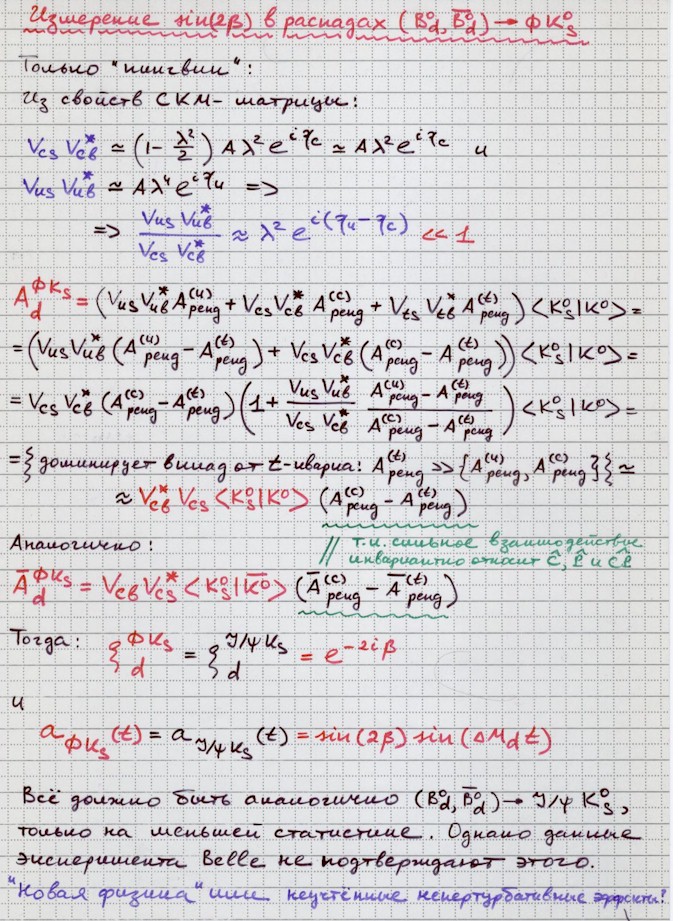 Измерение sin(2β) в распадах (B⁰_d, B̄⁰_d) → ϕK⁰_S
Только "пингвин":
Из свойств СКМ-матрицы:
V_cs V_cb^* ≃ (1 - λ²/2) A λ² e^{iη_c} ≃ A λ² e^{iη_c} и
V_us V_ub^* ≃ A λ⁴ e^{iη_u} =>
=> V_us V_ub^* / V_cs V_cb^* ≈ λ² e^{i(η_u - η_c)} << 1
A_d^{ϕK_S} = (V_us V_ub^* A_peng^{(u)} + V_cs V_cb^* A_peng^{(c)} + V_ts V_tb^* A_peng^{(t)}) <K⁰_S|K⁰> =
= (V_us V_ub^* (A_peng^{(u)} - A_peng^{(t)}) + V_cs V_cb^* (A_peng^{(c)} - A_peng^{(t)})) <K⁰_S|K⁰> =
= V_cs V_cb^* (A_peng^{(c)} - A_peng^{(t)}) (1 + V_us V_ub^* / V_cs V_cb^* (A_peng^{(u)} - A_peng^{(t)}) / (A_peng^{(c)} - A_peng^{(t)})) <K⁰_S|K⁰> =
= { доминирует вклад от t-кварка: A_peng^{(t)} >> {A_peng^{(u)}, A_peng^{(c)}} } ≃
≈ V_cb^* V_cs <K⁰_S|K⁰> (A_peng^{(c)} - A_peng^{(t)})
Аналогично:
// т.к. сильное взаимодействие
инвариантно относит Ĉ, P̂ и ĈP̂
Ā_d^{ϕK_S} = V_cb V_cs^* <K⁰_S|K̄⁰> (Ā_peng^{(c)} - Ā_peng^{(t)})
Тогда: ξ_d^{ϕK_S} = ξ_d^{J/ψ K_S} = e^{-2iβ}
и
a_{ϕK_S}(t) = a_{J/ψ K_S}(t) = sin(2β) sin(ΔM_d t)
Всё должно быть аналогично (B⁰_d, B̄⁰_d) → J/ψ K⁰_S,
только на меньшей статистике. Однако данные
эксперимента Belle не подтверждают этого.
"Новая физика" или неучтённые непертурбативные эффекты?